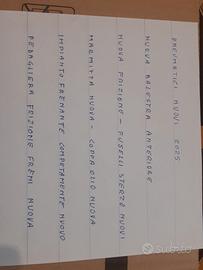 PNEUMATICI NUOVI 2025
NUOVA BALESTRA ANTERIORE
NUOVA FRIZIONE - FUSELLI STERZO NUOVI
MARMITTA NUOVA - COPPA OLIO NUOVA
IMPIANTO FRENANTE COMPETAMENTE NUOVO
PEDAGLIERA FRIZIONE FRENI NUOVA
Subito